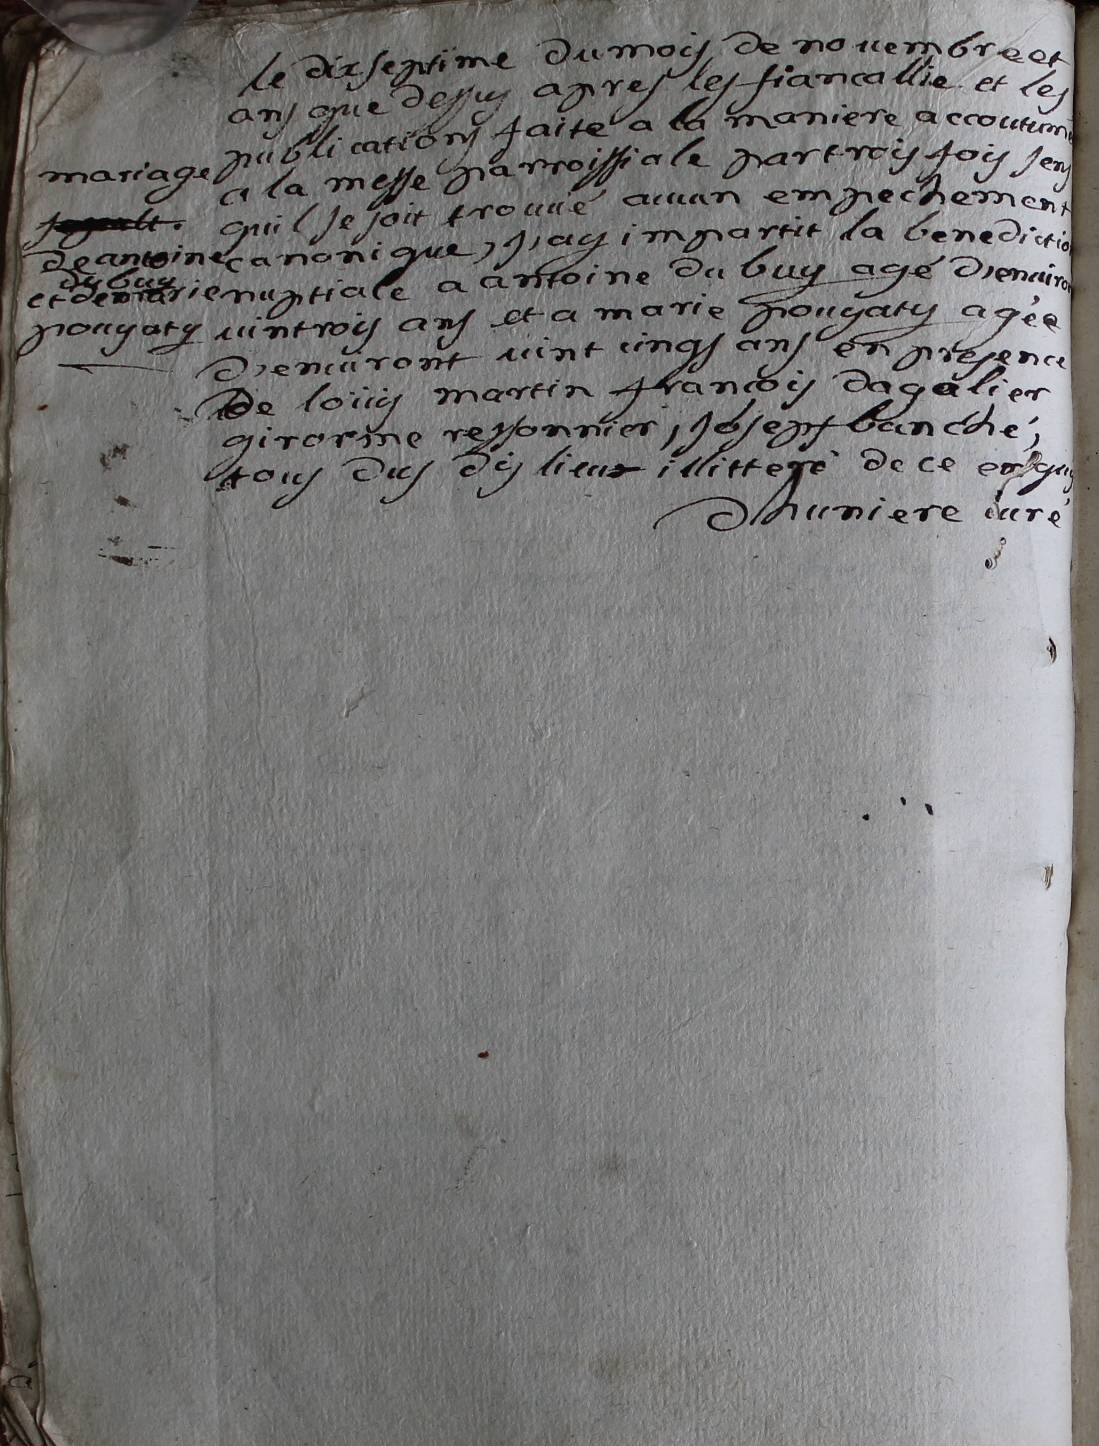 mariage
de antoine
du buy
et de marie
pougaty
le dixseptime du mois de nouembre et
ans que dessus apres les fiancallie et les
publications faite a la maniere accoutumé
a la messe parroissiale par trois fois sens
quil se soit trouué aucun empechement
canonique, j,ay impartit la benediction
nuptiale a antoine du buy agé d,enuiron
uintrois ans et a marie pougaty agée
d,enuiront uint cings ans en presence
de louis martin francois dagalier
girorme ressonnier, joseph banché,
tous dus dis lieux illitteré de ce enquis
Dhuniere curé